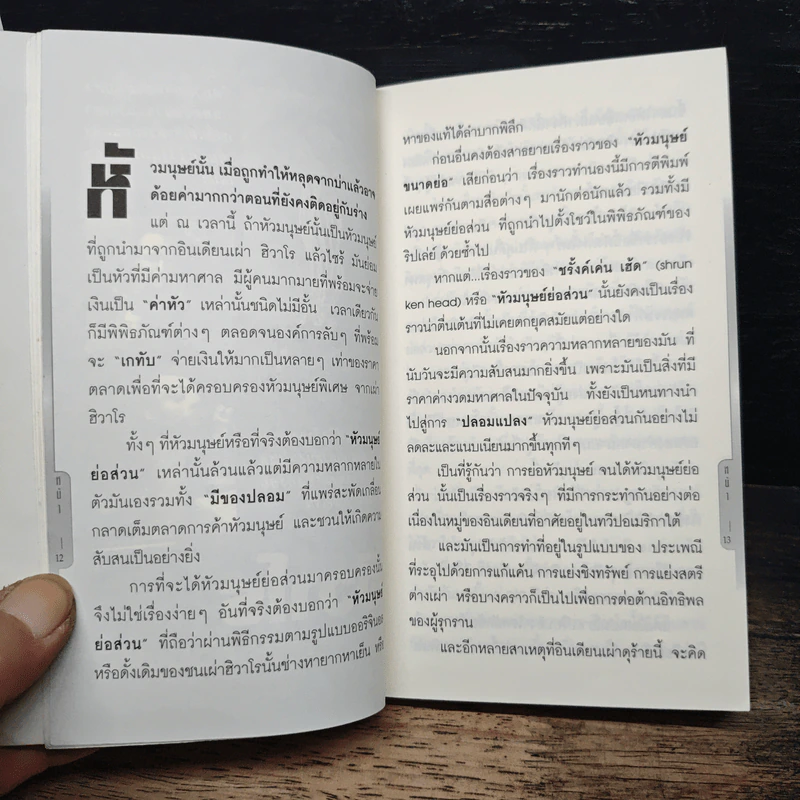 หัวมนุษย์นั้น เมื่อถูกทำให้หลุดจากบ่าแล้วอาจ
ด้อยค่ามากกว่าตอนที่ยังคงติดอยู่กับร่าง
แต่ ณ เวลานี้ ถ้าหัวมนุษย์นั้นเป็นหัวมนุษย์
ที่ถูกนำมาจากอินเดียนเผ่า ฮิวาโร แล้วไซร้ มันย่อม
เป็นหัวที่มีค่ามหาศาล มีผู้คนมากมายที่พร้อมจะจ่าย
เงินเป็น “ค่าหัว” เหล่านั้นชนิดไม่มีอั้น เวลาเดียวกัน
ก็มีพิพิธภัณฑ์ต่างๆ ตลอดจนองค์การลับๆ ที่พร้อม
จะ “เกทับ” จ่ายเงินให้มากเป็นหลายๆ เท่าของราคา
ตลาดเพื่อที่จะได้ครอบครองหัวมนุษย์พิเศษ จากเผ่า
ฮิวาโร
ทั้งๆ ที่หัวมนุษย์หรือที่จริงต้องบอกว่า “หัวมนุษย์
ย่อส่วน” เหล่านั้นล้วนแล้วแต่มีความหลากหลายใน
ตัวมันเองรวมทั้ง “มีของปลอม” ที่แพร่สะพัดเกลื่อน
กลาดเต็มตลาดการค้าหัวมนุษย์ และชวนให้เกิดความ
สับสนเป็นอย่างยิ่ง
การที่จะได้หัวมนุษย์ย่อส่วนมาครอบครองนั้น
จึงไม่ใช่เรื่องง่ายๆ อันที่จริงต้องบอกว่า “หัวมนุษย์
ย่อส่วน” ที่ถือว่าผ่านพิธีกรรมตามรูปแบบออริจินอล
หรือดั้งเดิมของชนเผ่าฮิวาโรนั้นช่างหายากหาเย็น หรือ
12
หาของแท้ได้ลำบากพิลึก
ก่อนอื่นคงต้องสาธยายเรื่องราวของ “หัวมนุษย์
ขนาดย่อ” เสียก่อนว่า เรื่องราวทำนองนี้มีการตีพิมพ์
เผยแพร่กันตามสื่อต่างๆ มานักต่อนักแล้ว รวมทั้งมี
หัวมนุษย์ย่อส่วน ที่ถูกนำไปตั้งโชว์ในพิพิธภัณฑ์ของ
ริปเล่ย์ ด้วยซ้ำไป
หากแต่...เรื่องราวของ “ชรั้งค์เค่น เฮ้ด” (shrun
ken head) หรือ “หัวมนุษย์ย่อส่วน” นั้นยังคงเป็นเรื่อง
ราวน่าตื่นเต้นที่ไม่เคยตกยุคสมัยแต่อย่างใด
นอกจากนั้นเรื่องราวความหลากหลายของมัน ที่
นับวันจะมีความสับสนมากยิ่งขึ้น เพราะมันเป็นสิ่งที่มี
ราคาค่างวดมหาศาลในปัจจุบัน ทั้งยังเป็นหนทางนำ
ไปสู่การ “ปลอมแปลง” หัวมนุษย์ย่อส่วนกันอย่างไม่
ลดละและแนบเนียนมากขึ้นทุกทีๆ
เป็นที่รู้กันว่า การย่อหัวมนุษย์ จนได้หัวมนุษย์ย่อ
ส่วน นั้นเป็นเรื่องราวจริงๆ ที่มีการกระทำกันอย่างต่อ
เนื่องในหมู่ของอินเดียนที่อาศัยอยู่ในทวีปอเมริกาใต้
และมันเป็นการทำที่อยู่ในรูปแบบของ ประเพณี
ที่ระอุไปด้วยการแก้แค้น การแย่งชิงทรัพย์ การแย่งสตรี
ต่างเผ่า หรือบางคราวก็เป็นไปเพื่อการต่อต้านอิทธิพล
ของผู้รุกราน
และอีกหลายสาเหตุที่อินเดียนเผ่าดุร้ายนี้ จะคิด
13